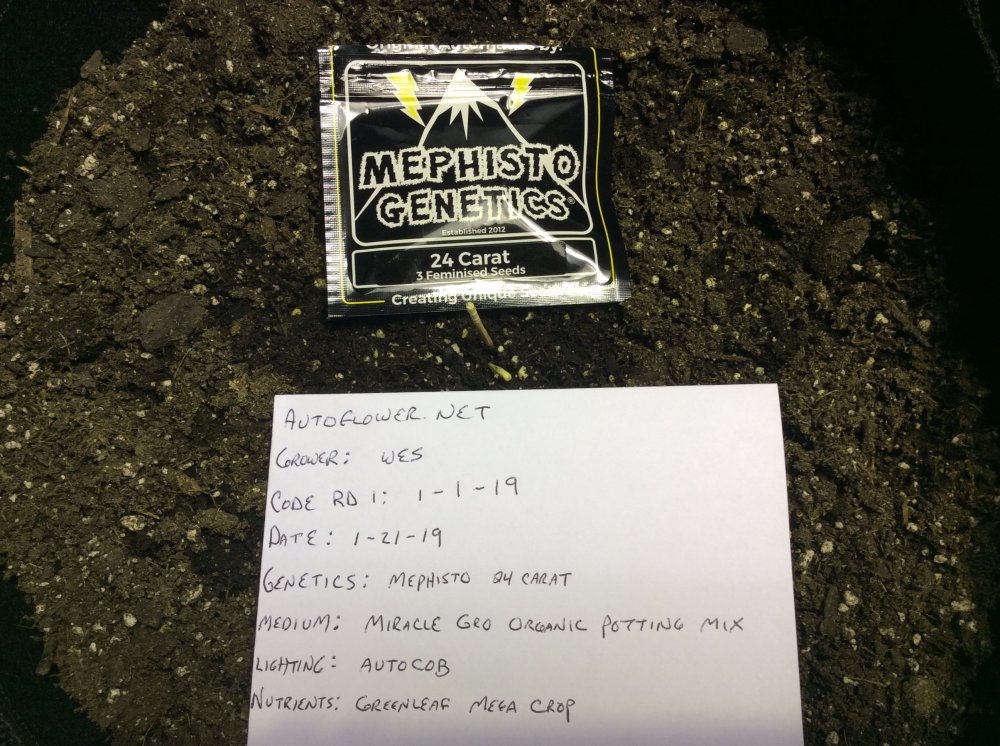 Original Autoflowers by:
MEPHISTO
GENETICS®
Established 2012
24 Carat
3 Feminised Seeds
Creating Unique
AUTOFLOWER.NET
GROWER: WES
CODE RD 1: 1-1-19
DATE: 1-21-19
GENETICS: MEPHISTO 24 CARAT
MEDIUM: MIRACLE GRO ORGANIC POTTING MIX
LIGHTING: AUTOCOB
NUTRIENTS: GREENLEAF MEGA CROP